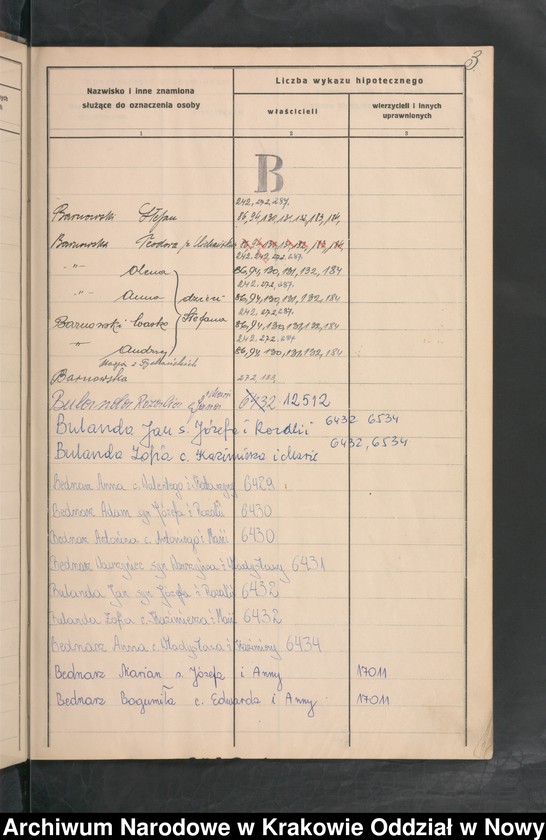 3
Nazwisko i inne znamiona
służące do oznaczenia osoby
Liczba wykazu hipotecznego
właścicieli
wierzycieli i innych
uprawnionych
1
2
3
B
242, 272, 287.
Barnowski Stefan 86, 94, 130, 131, 132, 183, 184,
Barnowska Teodora
242. 272. 287.
-"- Olena 86, 94, 130, 131, 132, 184
242. 272. 287.
-"- Anna dzieci 86, 94, 130, 131, 132, 184
242. 272. 287.
Barnowski Stefana 86, 94, 130, 131, 132, 184
242. 272. 287
" Andrzej 86, 94, 130, 131, 132, 184
Barnowska 272, 183,
6432 12512
Bulanda Jan s. Józefa i Rozalii 6432 6534
Bulanda Zofia c. Kazimierza i Marii 6432, 6534
Bednarz Anna c. Walentego i Katarzyny 6429
Bednarz Adam syn Józefa i Rozalii 6430
Bednarz Antonina c. Antoniego i Marii 6430
Bednarz Wawrzyniec syn Wawrzyńca i Władysławy 6431
Bulanda Jan syn Józefa i Rozalii 6432
Bulanda Zofia c. Kazimierza i Marii 6432
Bednarz Anna c. Władysława i Kazimiery 6434
Bednarz Marian s. Józefa i Anny 17011
Bednarz Bogumiła c. Edwarda i Anny 17011
Archiwum Narodowe w Krakowie Oddział w Nowy